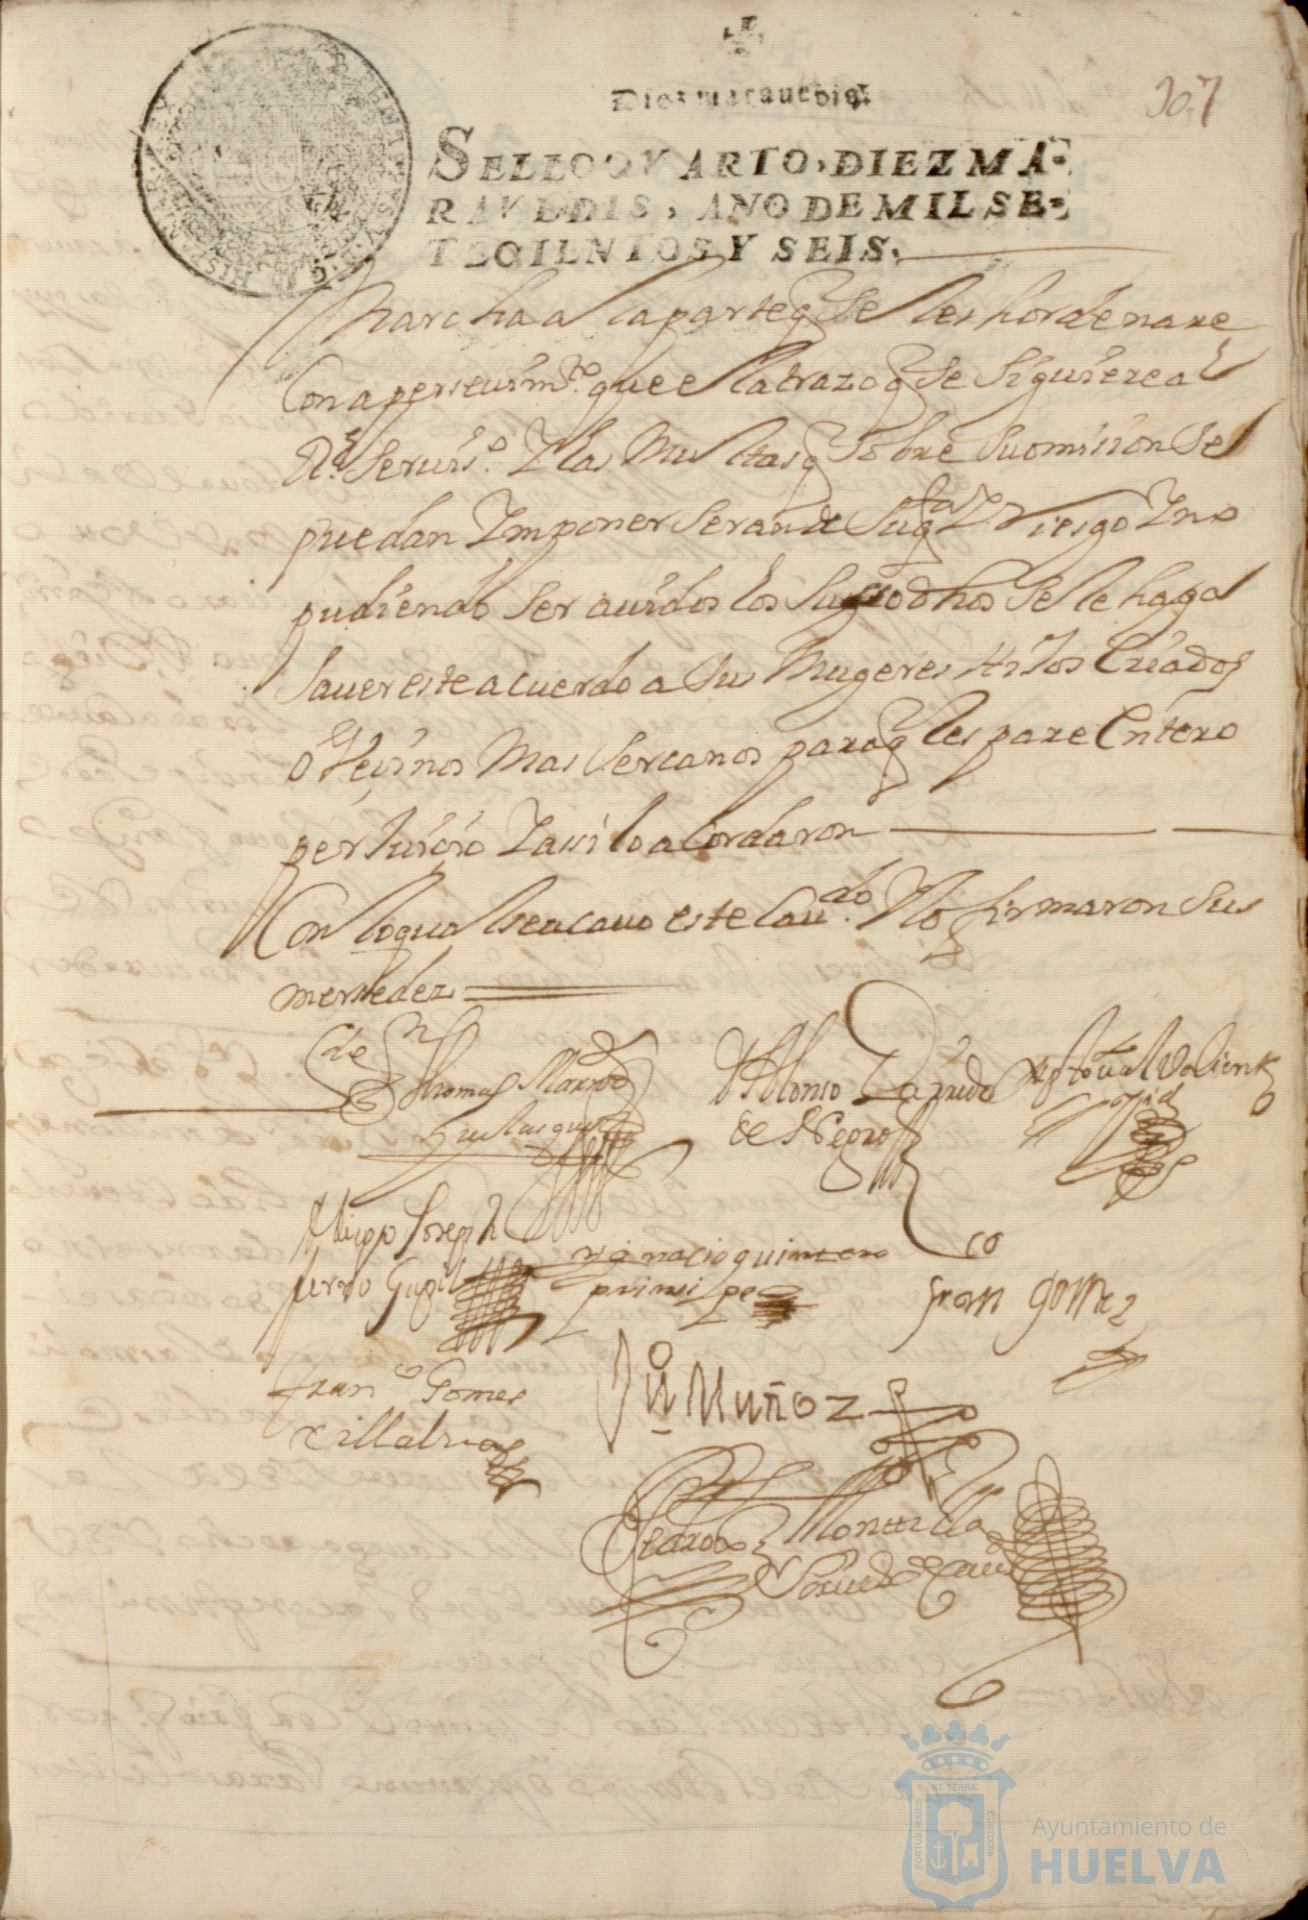 307
Diez marauedis
SELLO QVARTO, DIEZ MA-
RAVEDIS, AÑO DE MIL SE-
TECIENTOS Y SEIS.
Marcha a la parte q se les hordenare
Con apersevim.to que el atrazo q se siguiere al
Rl. Seruis.o Y las Multas q sobre su omision se
puedan Imponer seran de su q.ta Y Riesgo Y no
pudiendo ser auidos los susodhos se le haga
sauer este acuerdo a sus Mugeres Hijos Criados
o Veisinos Mas sercanos para q les pare Entero
perJuisio Y assi lo acordaron
Con lo qual se acauo este Cau.do Y lo firmaron sus
mersedez
Thomas
D Alonso Garrido
de Negro
Xptoual Valiente
Diego Joseph
ygnacio quintero
prinsipe
fran co gomez
Fran co Gomes
Villalua
Ju.o Muñoz
Pedro Montilla
PORTUS MARIS
ET TERRÆ
CUSTODIA
Ayuntamiento de
HUELVA